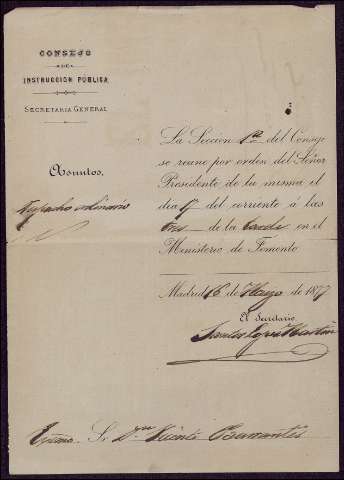 CONSEJO
DE
INSTRUCCION PÚBLICA
SECRETARÍA GENERAL
Asuntos,
Despacho ordinario
La Seccion 1ª del Consejo
se reune por orden del Señor
Presidente de la misma el
dia 17 del corriente á las
tres de la tarde en el
Ministerio de Fomento.
Madrid 16 de Mayo de 1877
El Secretario
Santos Lopez
Sr. Dn Vicente Barrantes